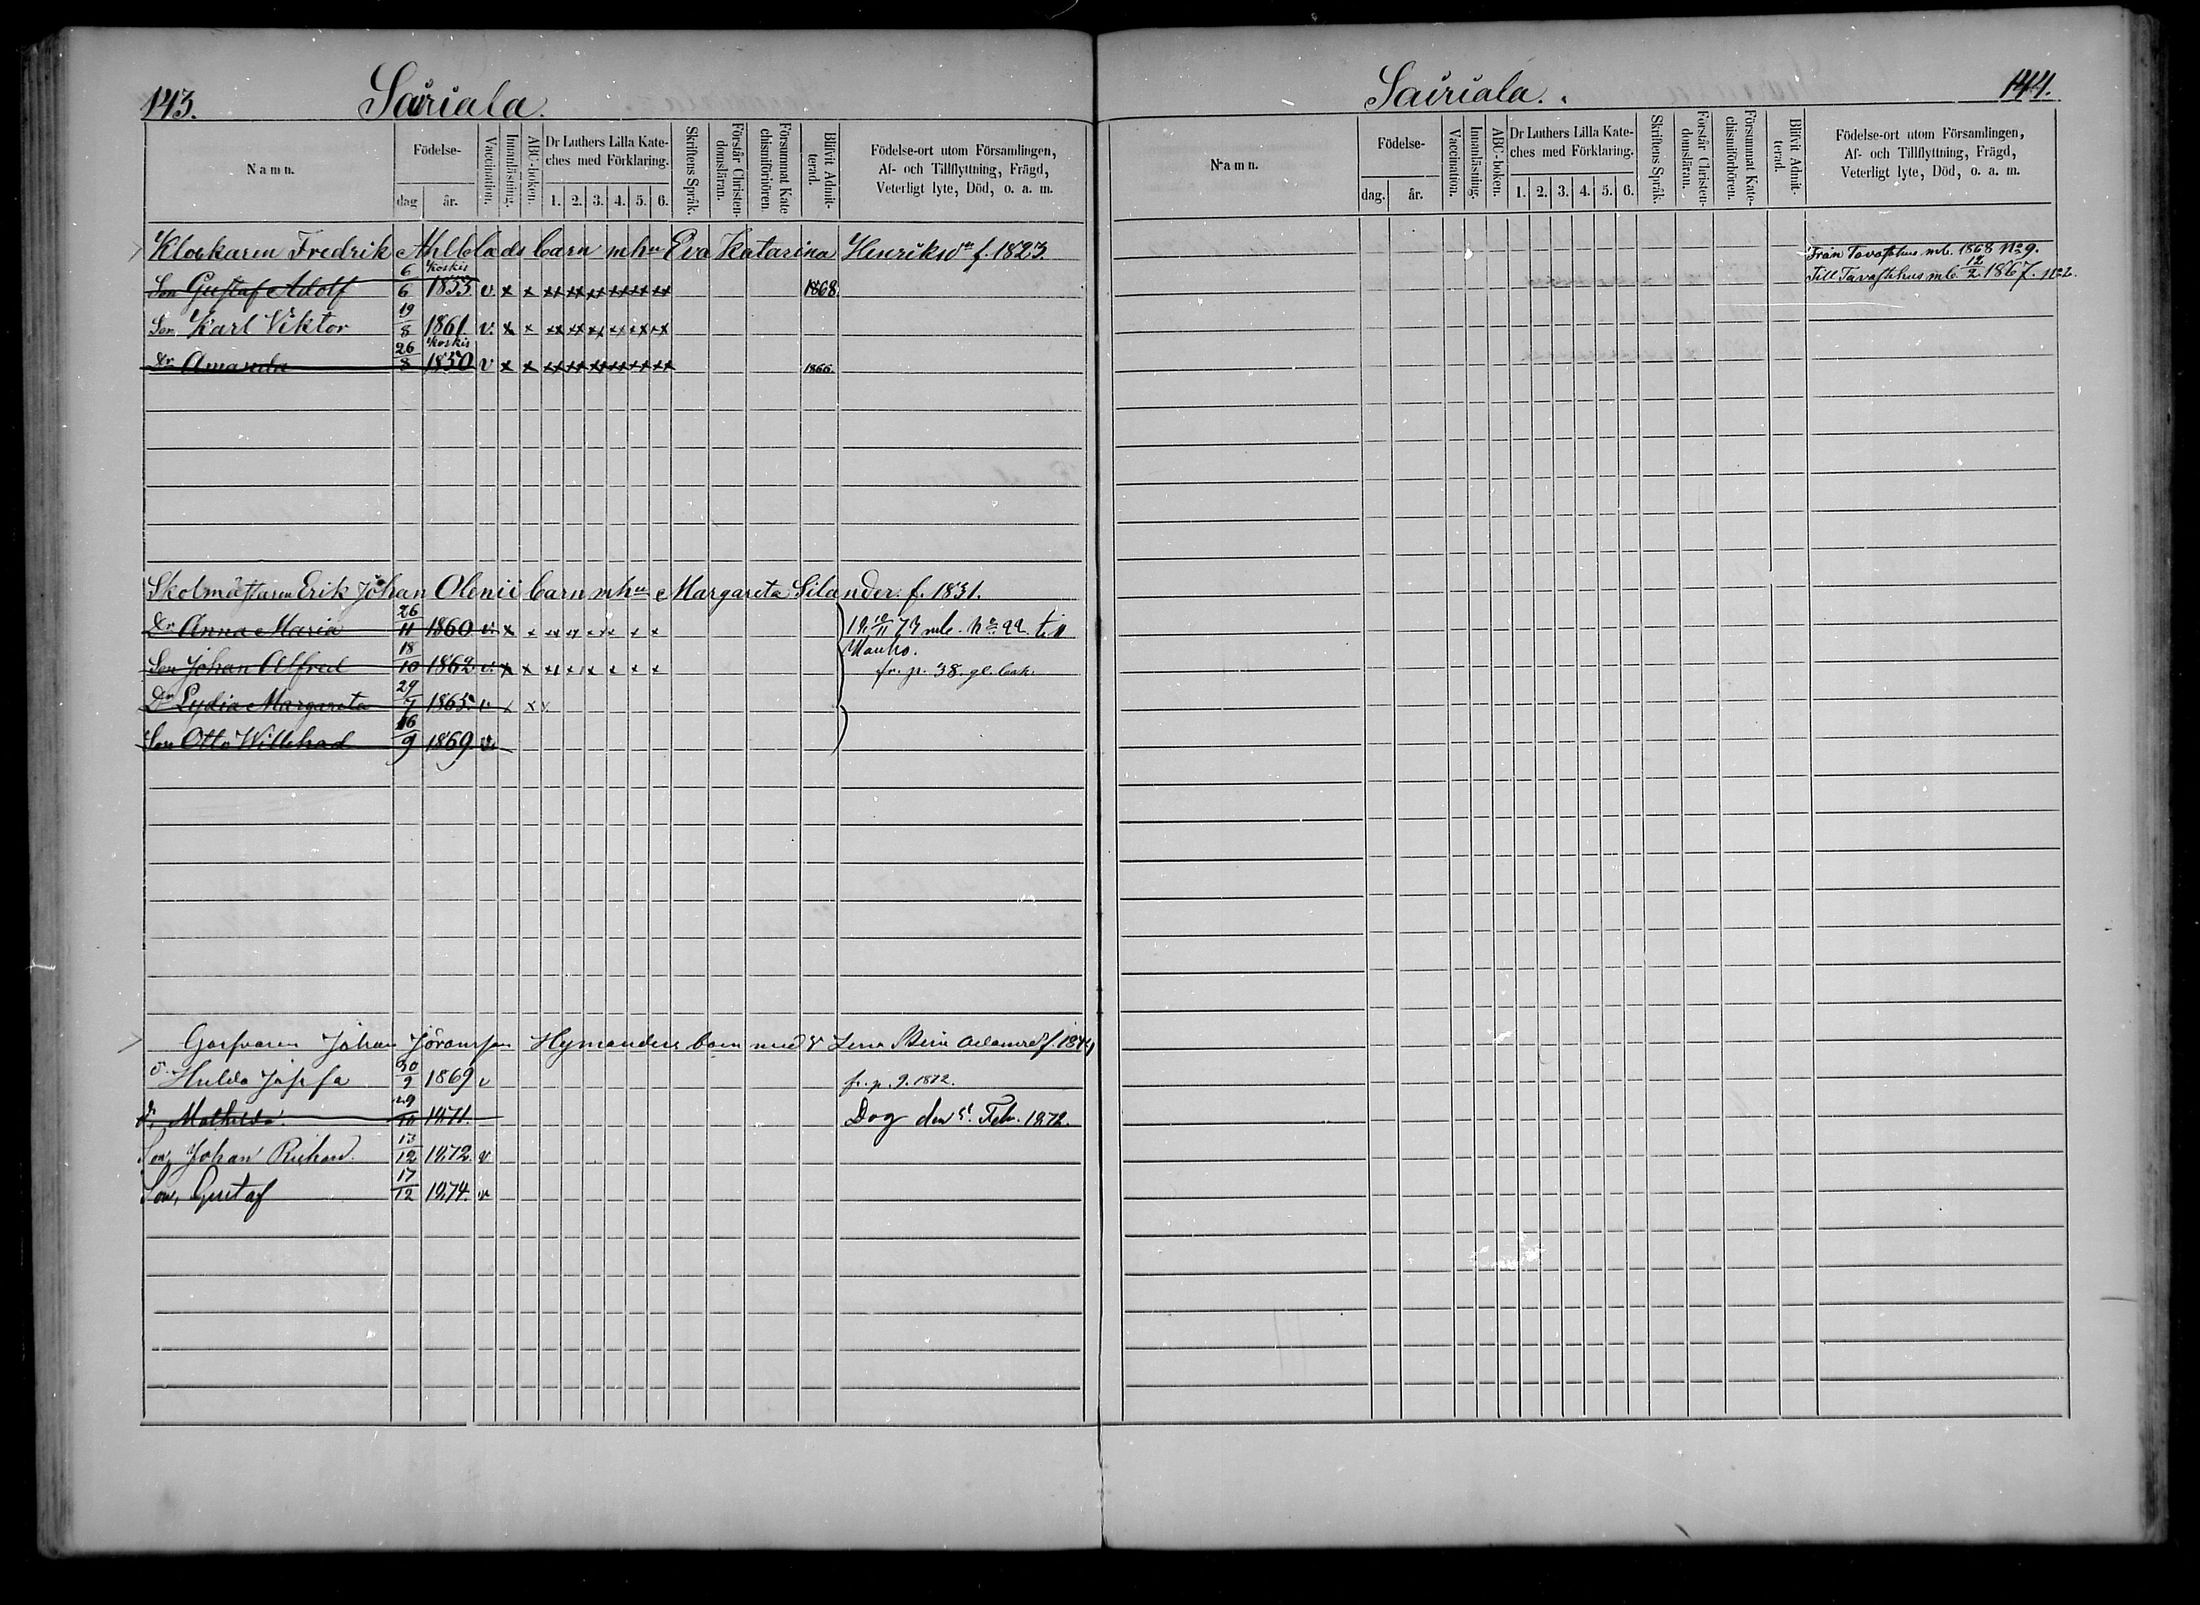 143. Sairiala.
Namn. Födelse- dag år. Vaccination. Innanläsning. ABC-boken. Dr Luthers Lilla Kate-ches med Förklaring. 1. 2. 3. 4. 5. 6. Skriftens Språk. Förstår Christen-domsläran. Försummat Kate chismiförhören. Blifvit Admit-terad. Födelse-ort utom Församlingen, Af- och Tillflyttning, Frägd, Veterligt lyte, Död, o. a. m.
Klockaren Fredrik Ahlblads barn m hu Eva Katarina Henriksdr f. 1823
Son Gustaf Adolf 6/6 Koskis 1853 v x x xx xx xx xx xx xx 1868
Son Karl Viktor 19/8 1861 v. x x xx xx xx xx xx xx
Dr Amanda 26/8 Koskis 1850 v x x xx xx xx xx xx xx 1866.
Skolmästaren Erik Johan Olenii barn m hu Margareta Silander. f. 1831.
Dr Anna Maria 26/11 1860 v. x x xx xx xx xx x x mb. No 92. till
Son Johan Alfred 18/10 1862 v. x x xx x x x x x Mauho.
fr. p. 38. gl. bok.
Dr Lydia Margareta 29/7 1865 v x x v.
Son Otto Willehad 16/9 1869 v.
Johan Jöransson Hymanders barn med Lena Stina Adamsd f.
d. Hulda Josefa 30/9 1869 v fr. p. 9. 1872.
d. Mathilda. 29/10 1871. Dog den 5. Feb. 1872.
Son, Johan Richard. 13/12 1872. v
Son, Gustaf 17/12 1874. v
Sairiala. 144.
Namn. Födelse- dag. år. Vaccination. Innanläsning. ABC-boken. Dr Luthers Lilla Kate-ches med Förklaring. 1. 2. 3. 4. 5. 6. Skriftens Språk. Förstår Christen-domsläran. Försummat Kate-chismiförhören. Blifvit Admit-terad. Födelse-ort utom Församlingen, Af- och Tillflyttning, Frägd, Veterligt lyte, Död, o. a. m.
Från Tavastehus mb. 1868 No 9.
Till Tavastehus mb. 12/2 1867. No 2.